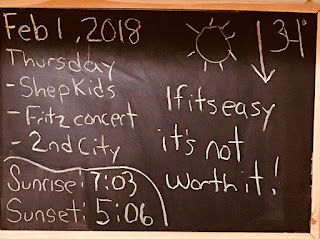 Feb 1, 2018
34°
Thursday
- Shep Kids
- Fritz concert
- 2nd City
Sunrise: 7:03
Sunset: 5:06
If its easy
it's not
worth it!